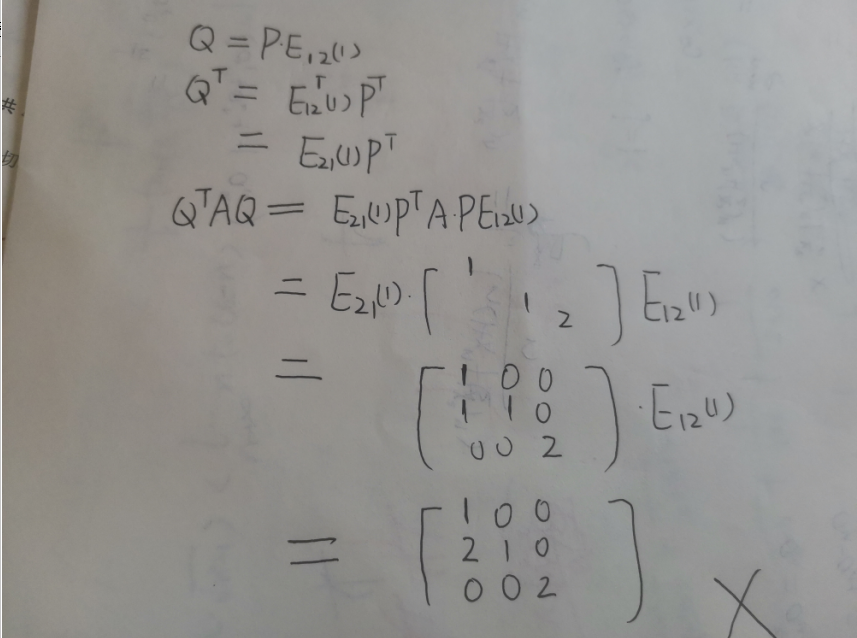 Q = P·E₁₂(1)
Qᵀ = E₁₂ᵀ(1)Pᵀ
= E₂₁(1)Pᵀ
QᵀAQ = E₂₁(1)PᵀA·PE₁₂(1)
= E₂₁(1)·[1 1 2]E₁₂(1)
= [1 0 0
1 1 0
0 0 2]·E₁₂(1)
= [1 0 0
2 1 0
0 0 2]
×
切